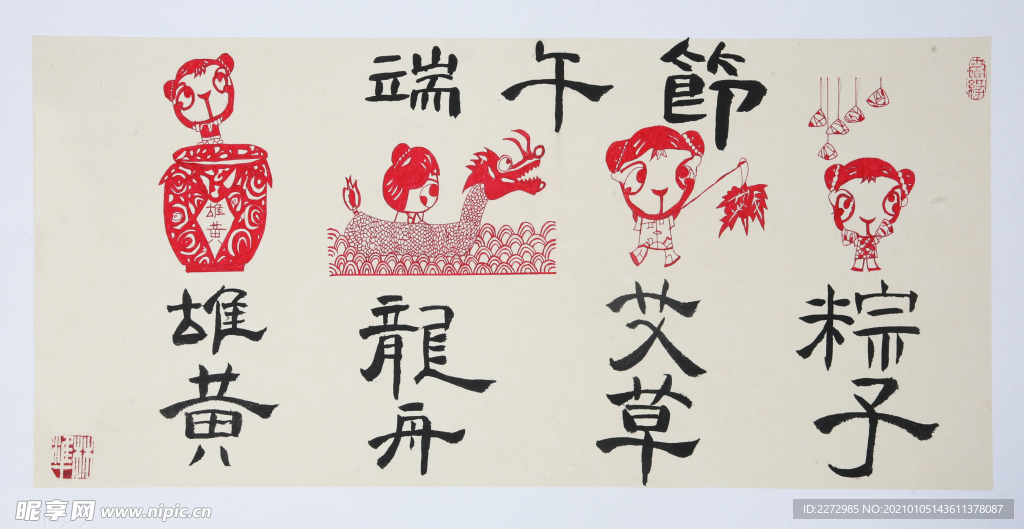 端午節
雄黄
雄黄
龍舟
艾草
粽子
昵享网 www.nipic.cn
ID:2272985 NO:20210105143611378087